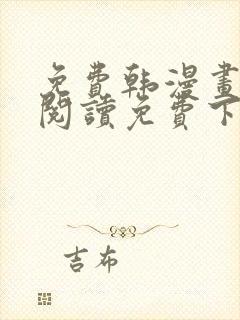 免費韩漫畫
閱讀免費下
吉布